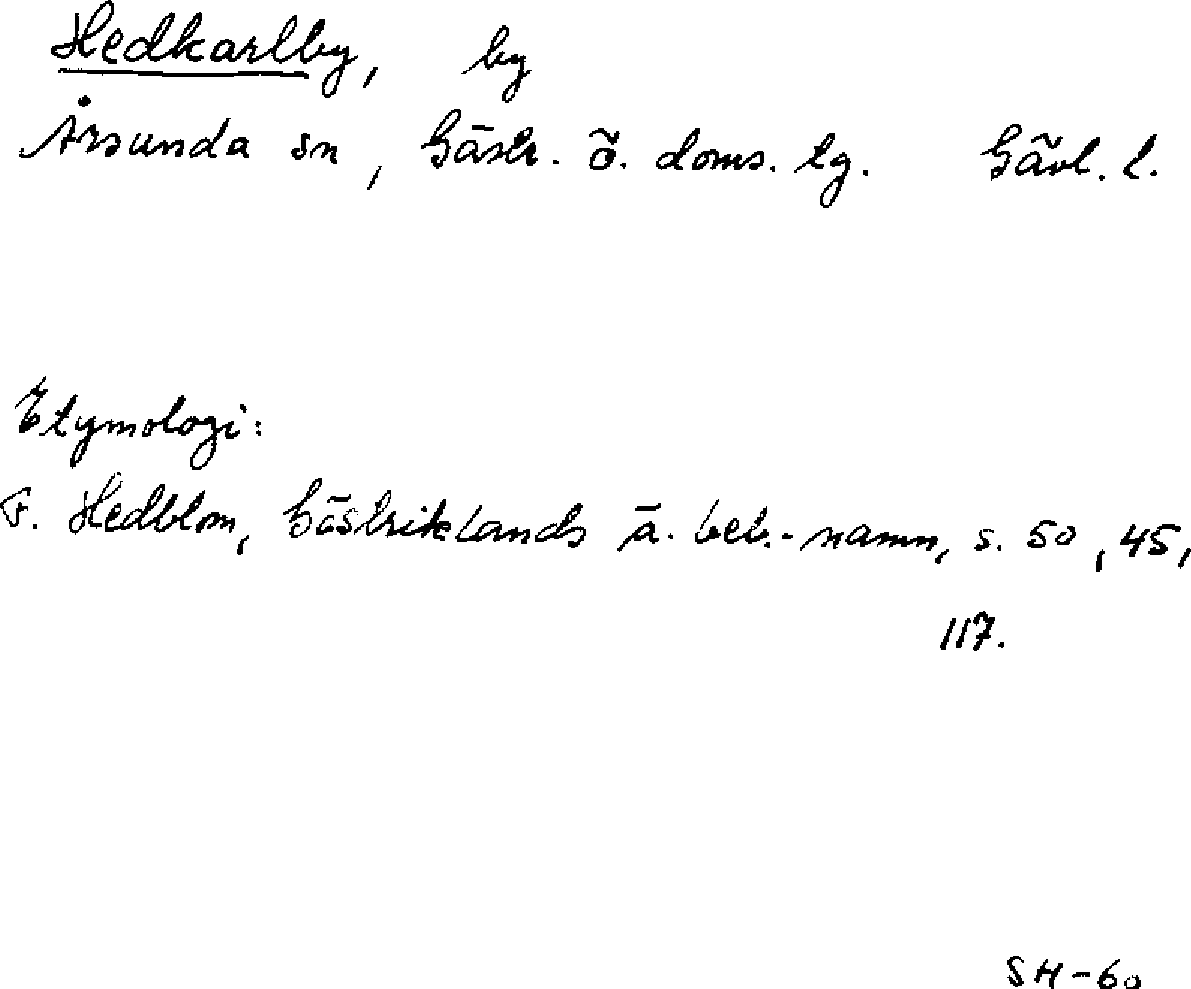 Hedkarlby, by
Årsunda sn, Gästr. ö. doms. tg. Gävl. l.
Etymologi:
F. Hedblom, Gästriklands ä. beb.-namn, s. 50, 45,
117.
SH-60